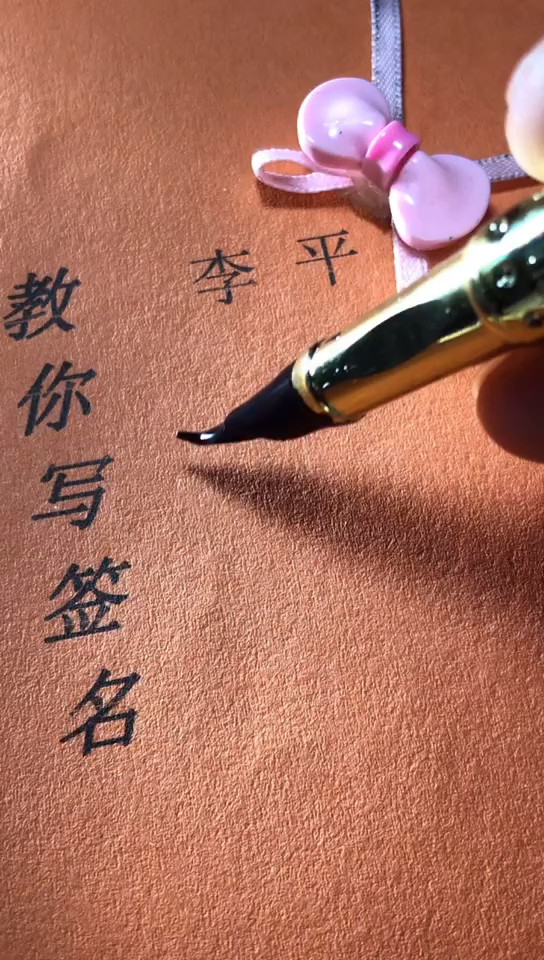 教你写签名
李平